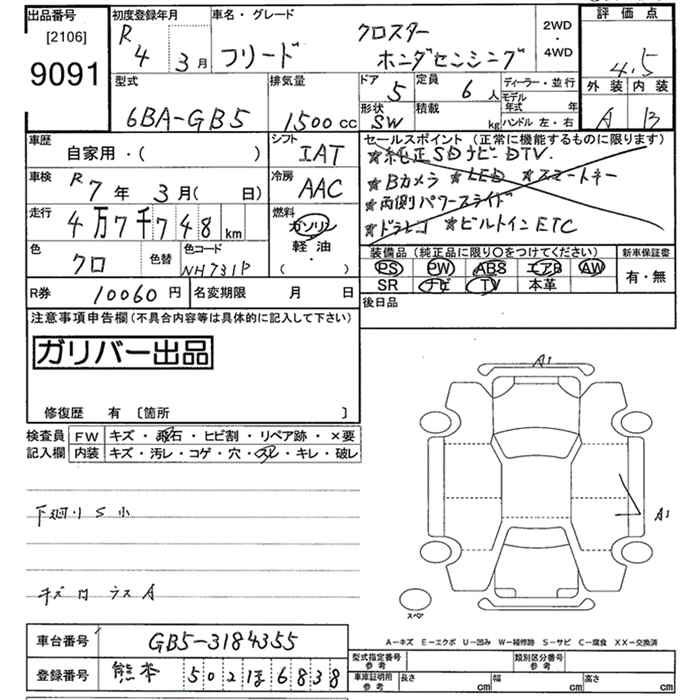 出品番号
[2106]
9091
初度登録年月
R 4 3月
車名・グレード
クロスター
フリード ホンダセンシング
2WD
・
4WD
評価点
4.5
外装 内装
A B
型式
6BA-GB5
排気量
1500cc
ドア
5
定員
6人
ディーラー・並行
モデル年式 年
形状
SW
積載
kg
ハンドル 左・右
車歴
自家用・( )
シフト
IAT
車検
R7年3月( 日)
冷房
AAC
走行
4万7千748km
燃料
ガソリン
軽油
・
( )
色
クロ
色替
色コード
NH731P
セールスポイント(正常に機能するものに限ります)
★純正SDナビ・DTV.
★Bカメラ ★LED ★スマートキー
★両側パワースライド
★ドラレコ ★ビルトインETC
装備品(純正品に限り○をつけてください)
PS PW ABS エアB AW
SR ナビ TV 本革
新車保証書
有・無
R券 10060円
名変期限 月 日
後日品
注意事項申告欄(不具合内容等は具体的に記入して下さい)
ガリバー出品
修復歴 有 〔箇所 〕
検査員 FW キズ・飛石・ヒビ割・リペア跡・×要
記入欄 内装 キズ・汚レ・コゲ・穴・スレ・キレ・破レ
A1
下廻りS小
A1
キズ ガラスA
スペア
A-キズ E-エクボ U-凹み W-補修跡 S-サビ C-腐食 XX-交換済
車台番号 GB5-3184355
登録番号 熊本 502 ほ 6838
型式指定番号
参考
類別区分番号
参考
車庫証明用
参考
長さ cm 幅 cm 高さ cm